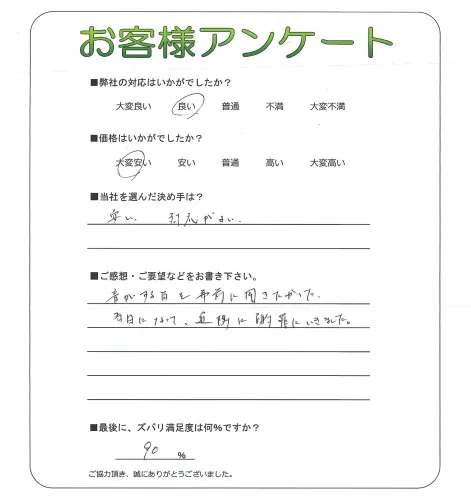 お客様アンケート
■弊社の対応はいかがでしたか？
大変良い 良い 普通 不満 大変不満
■価格はいかがでしたか？
大変安い 安い 普通 高い 大変高い
■当社を選んだ決め手は？
安い 対応がよい.
■ご感想・ご要望などをお書き下さい。
音がする旨を事前に聞きたかった.
当日になって、近隣に謝罪にいきました。
■最後に、ズバリ満足度は何%ですか？
90 %
ご協力頂き、誠にありがとうございました。